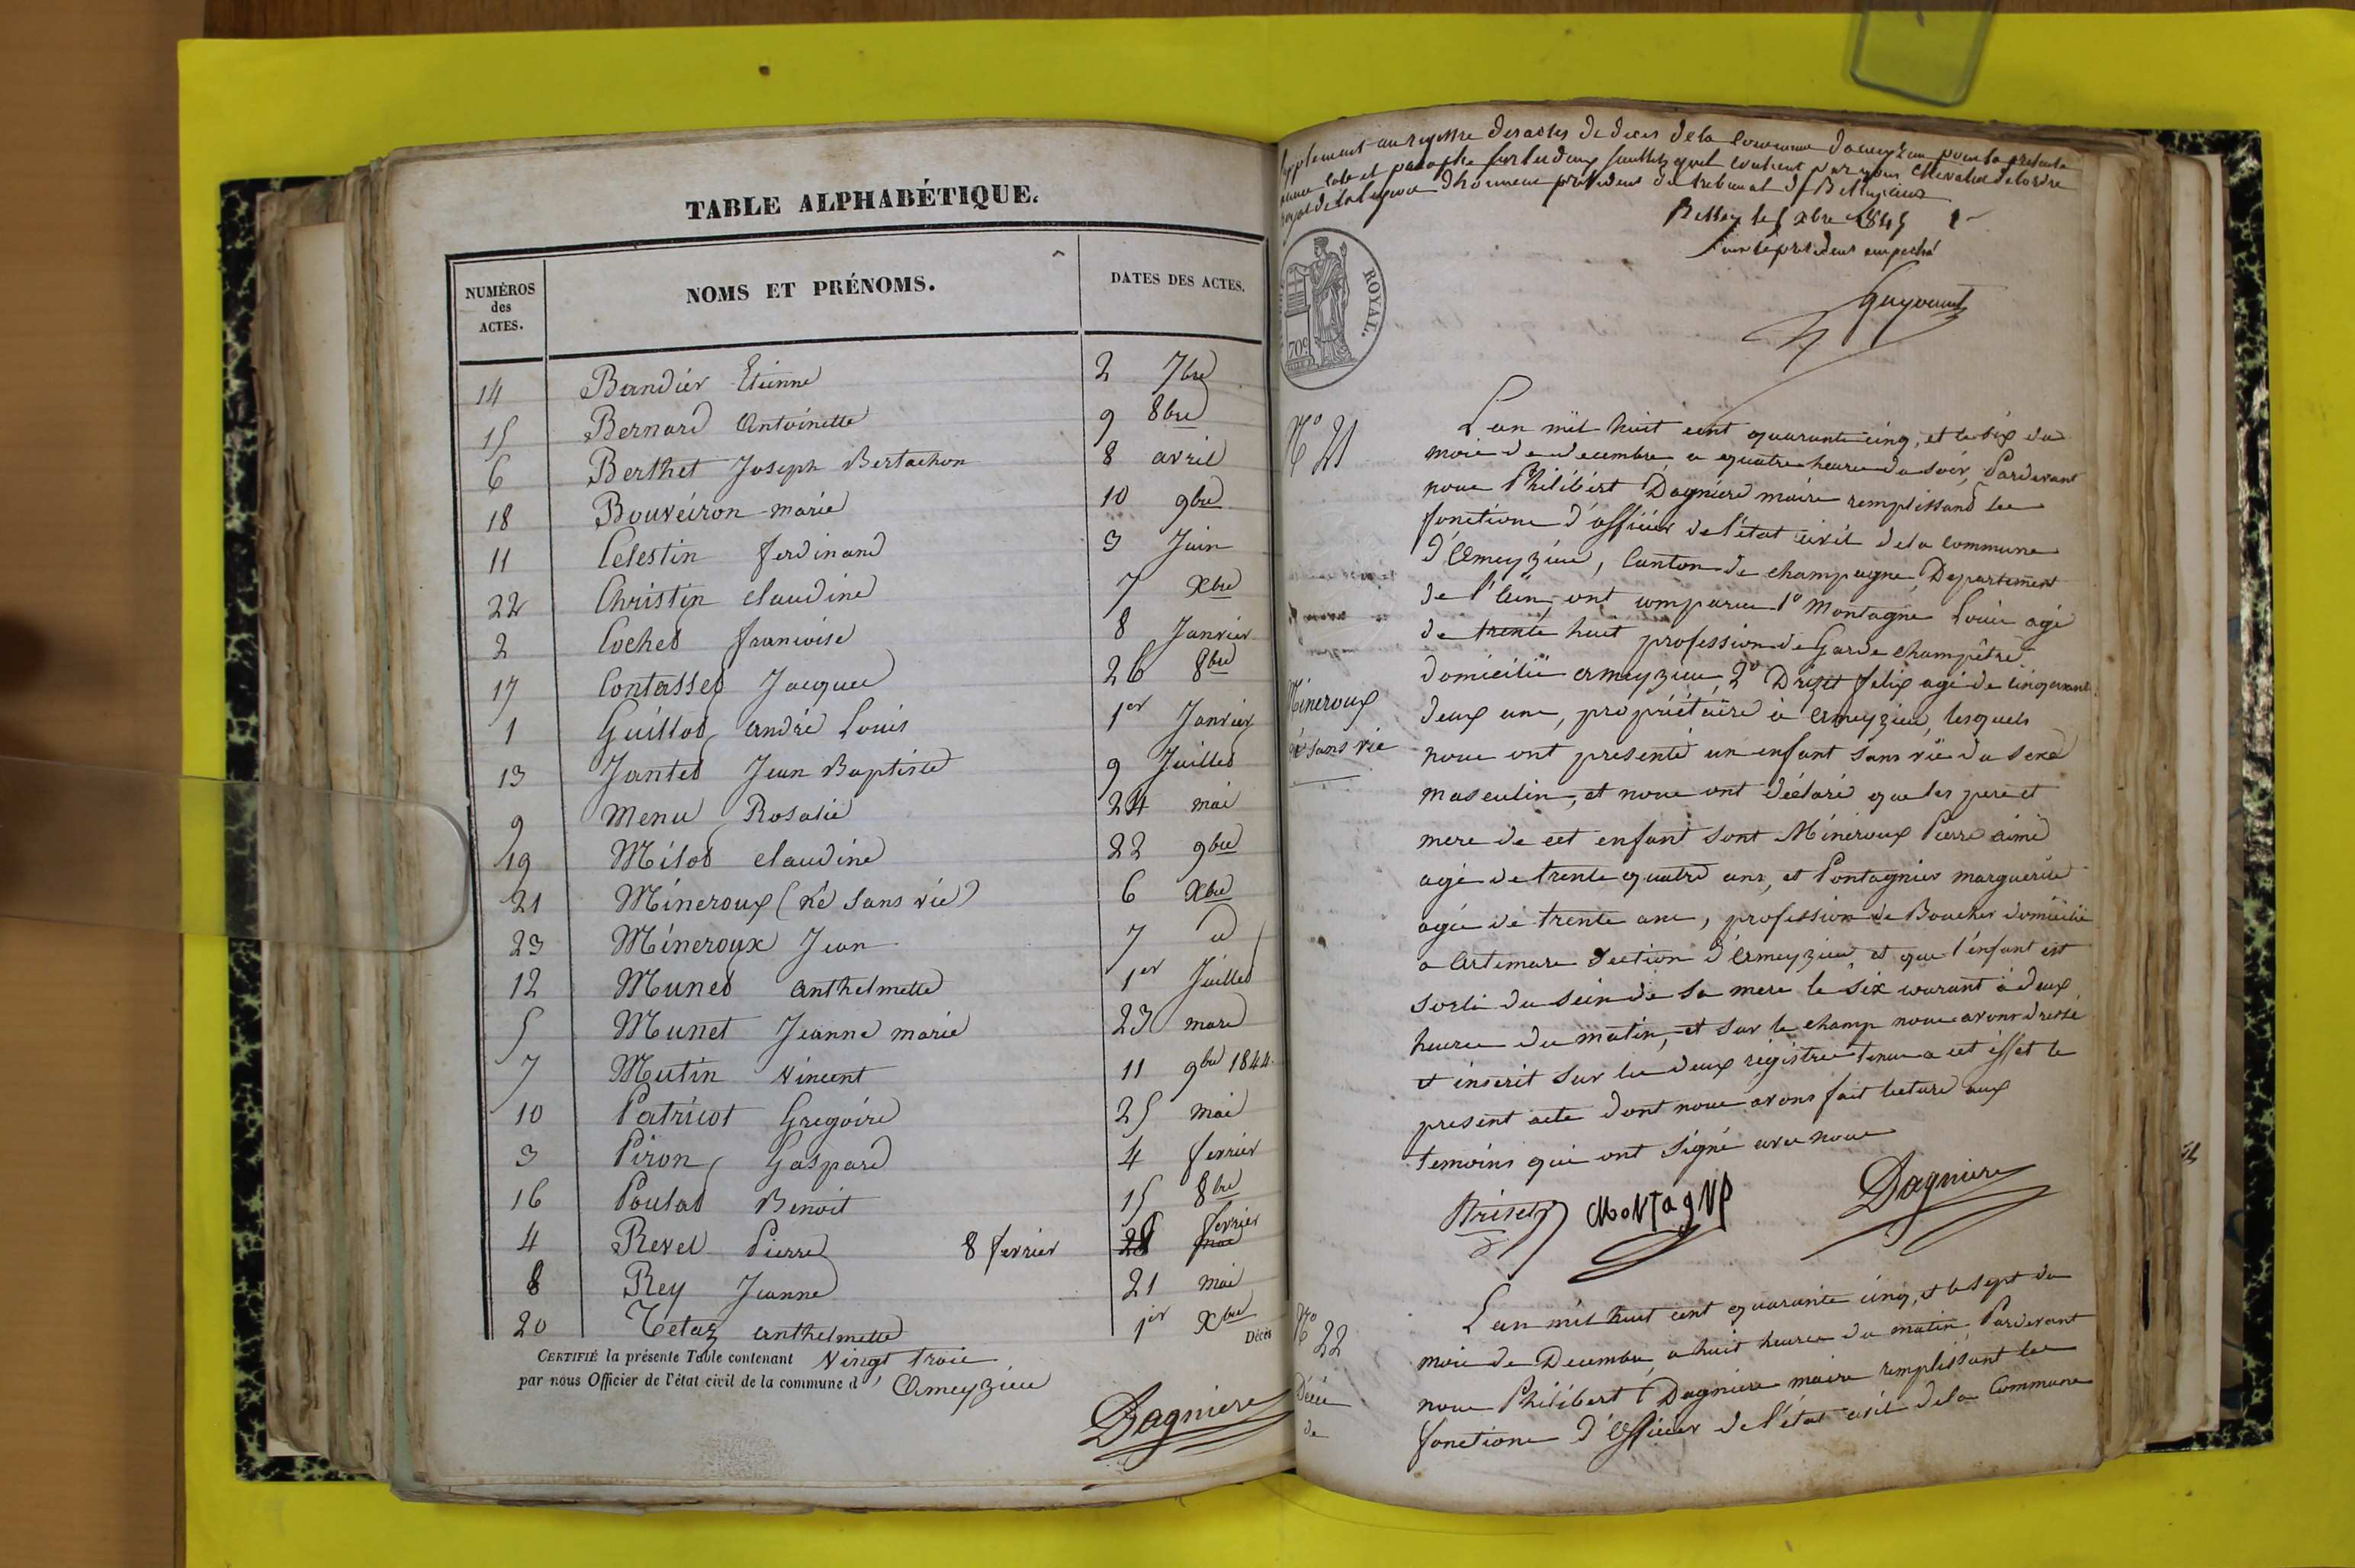 TABLE ALPHABÉTIQUE.
NUMÉROS des ACTES. NOMS ET PRÉNOMS. DATES DES ACTES.
14 Bandier Etienne 2 7bre
15 Bernard Antoinette 9 8bre
6 Berthet Joseph Bertachon 8 avril
18 Bouveiron marie 10 9bre
11 Celestin ferdinand 3 Juin
22 Christin claudine 7 Xbre
2 Cochet francoise 8 Janvier
17 Contasset Jacques 26 8bre
1 Guillot andré Louis 1er Janvier
13 Jantet Jean Baptiste 9 Juillet
9 Menu Rosalie 24 mai
19 Milot claudine 22 9bre
21 Mineroux (né sans vie) 6 Xbre
23 Mineroux Jean 7 d
12 Munet anthelmette 1er Juillet
5 Munet Jeanne marie 23 mars
7 Mutin Vincent 11 9bre 1844
10 Patricot Gregoire 25 mai
3 Piron Gaspard 4 fevrier
16 Poulat Benoit 15 8bre
4 Revel Pierre 8 fevrier 28 mai fevrier
8 Rey Jeanne 21 mai
20 Tetaz anthelmette 1er Xbre
Décès
CERTIFIÉ la présente Table contenant Vingt trois
par nous Officier de l'état civil de la commune d'Ameyzieu
Dagniere
supplement au registre des actes de deces de la Commune d'ameyzieu pour la presente
annee coté et paraphé sur les deux feuillets quil contient par nous Chevalier de l'ordre
royal de la legion dhonneur president du tribunal de Belley
Belley le 5 xbre 1845
Pour le president empeché
ROYAL.
70c
No 21
Mineroux
né sans vie
L'an mil huit cent quarante cinq, et le six du
mois de decembre a quatre heures du soir, Pardevant
nous Philibert Dagniere maire remplissant les
fonctions d'officier de l'état civil de la commune
d'Ameyzieu, Canton de champagne, Departement
de l'Ain, ont comparu 1o Montagne Louis agé
de trente huit profession de Garde champêtre
domicilié ameyzieu, 2o Drizet felix agé de cinquante
deux ans, propriétaire à Ameyzieu, lesquels
nous ont presenté un enfant sans vie du sexe
masculin, et nous ont déclaré que les pere et
mere de cet enfant sont Mineroux Pierre aimé
agé de trente quatre ans, et Pontagnier marguerite
agée de trente ans, profession de Boucher domicilié
a Artemare section d'Ameyzieu, et que l'enfant est
sorti du sein de sa mere le six courant à deux
heures du matin, et sur le champ nous avons dressé
et inscrit sur les deux registres tenus a cet effet le
present acte dont nous avons fait lecture aux
temoins qui ont signé avec nous
Drizet MoNTagNe Dagniere
No 22
Décès
de
L'an mil huit cent quarante cinq, et le sept du
mois de Decembre, a huit heures du matin, Pardevant
nous Philibert Dagniere maire remplissant les
fonctions d'officier de l'état civil de la Commune